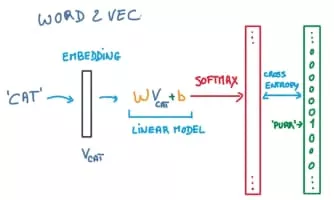 WORD 2 VEC
EMBEDDING
'CAT'
V CAT
W V CAT + b
LINEAR MODEL
SOFTMAX
CROSS
ENTROPY
'PURR'
0
0
0
0
0
0
1
0
0
0
0